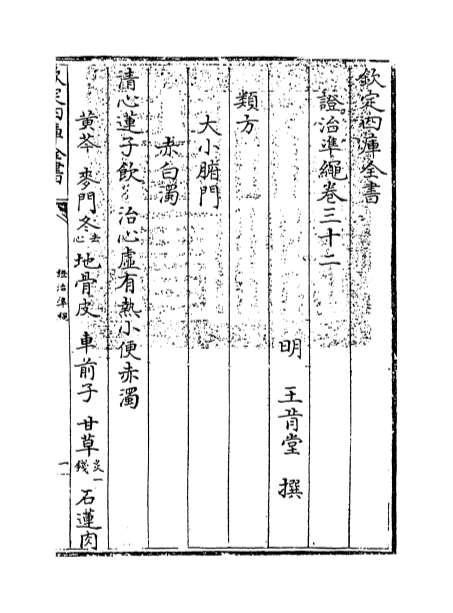 欽定四庫全書
證治準繩卷三十二
明 王肯堂 撰
類方
大小腑門
赤白濁
清心蓮子飲 治心虛有熱小便赤濁
黄芩 麥門冬去心 地骨皮 車前子 甘草炙一錢 石蓮肉
欽定四庫全書
證治準繩
一